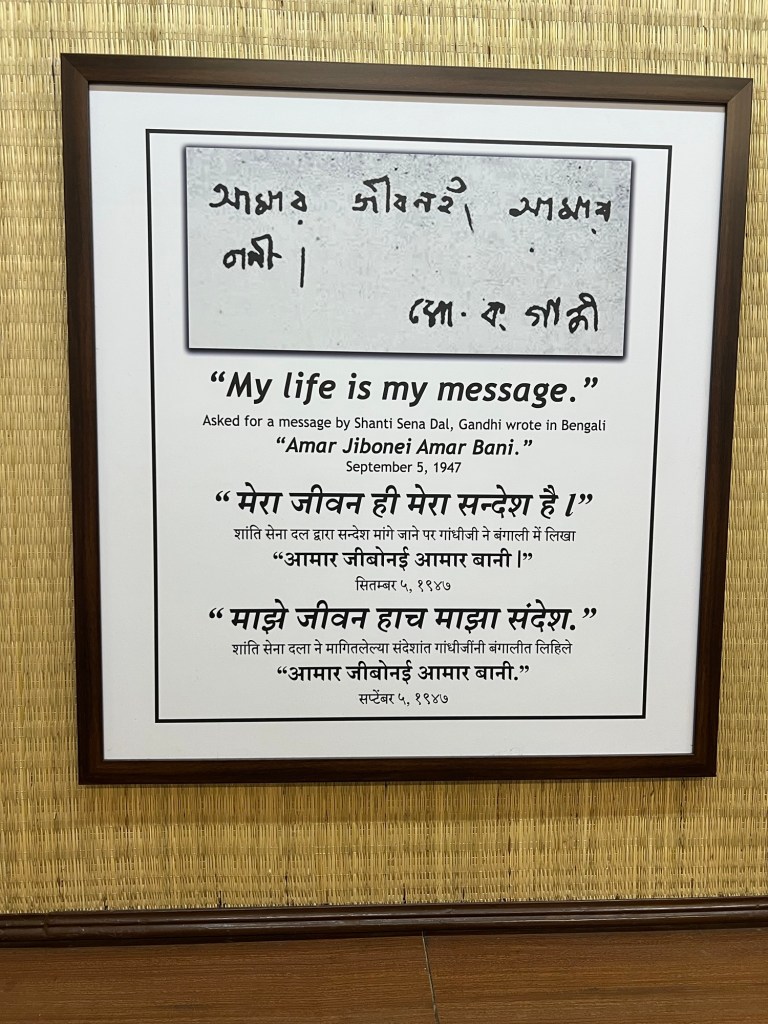 আমার জীবনই আমার
বাণী।
মো. ক. গান্ধী
“My life is my message.”
Asked for a message by Shanti Sena Dal, Gandhi wrote in Bengali
“Amar Jibonei Amar Bani.”
September 5, 1947
“ मेरा जीवन ही मेरा सन्देश है l”
शांति सेना दल द्वारा सन्देश मांगे जाने पर गांधीजी ने बंगाली में लिखा
“आमार जीबोनई आमार बानी |”
सितम्बर ५, १९४७
“ माझे जीवन हाच माझा संदेश.”
शांति सेना दला ने मागितलेल्या संदेशांत गांधीजींनी बंगालीत लिहिले
“आमार जीबोनई आमार बानी.”
सप्टेंबर ५, १९४७